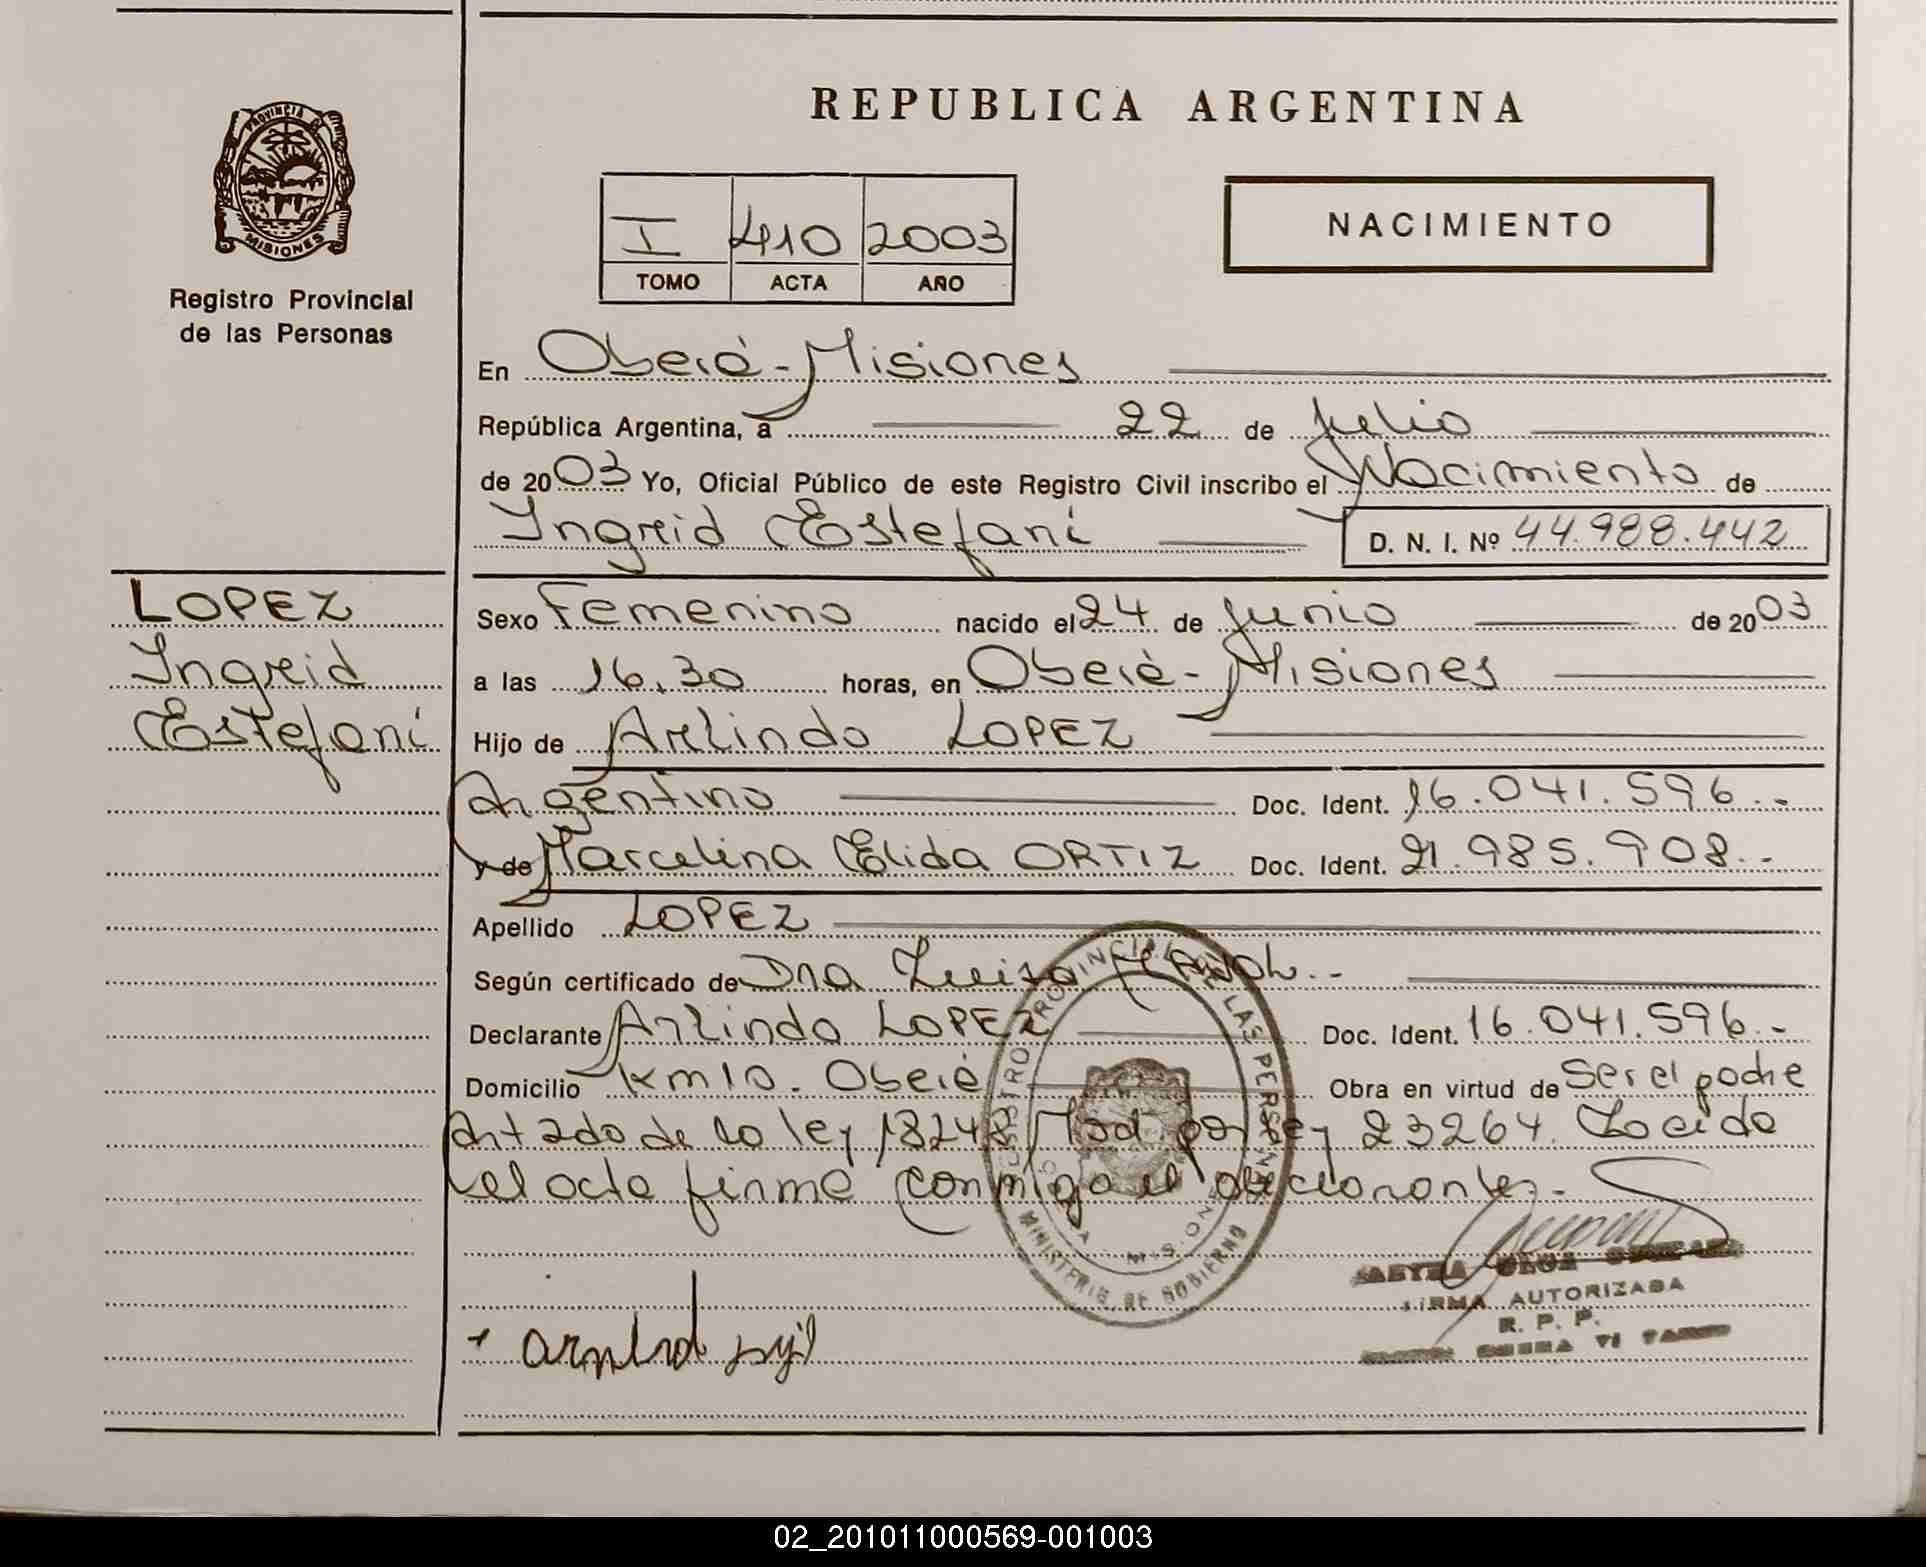 REPUBLICA ARGENTINA
PROVINCIA DE
MISIONES
Registro Provincial
de las Personas
I 410 2003
TOMO ACTA AÑO
NACIMIENTO
En Oberá - Misiones
República Argentina, a 22 de Julio
de 2003 Yo, Oficial Público de este Registro Civil inscribo el Nacimiento de
Ingrid Estefani D. N. I. Nº 44.988.442
LOPEZ
Ingrid
Estefani
Sexo Femenino nacido el 24 de Junio de 2003
a las 16.30 horas, en Oberá - Misiones
Hijo de Arlindo LOPEZ
Argentino Doc. Ident. 16.041.596.-
y de Marcelina Elida ORTIZ Doc. Ident. 21.985.908.-
Apellido LOPEZ
Según certificado de Dra Luisa
Declarante Arlindo LOPEZ Doc. Ident. 16.041.596.-
Domicilio Km 10. Oberá Obra en virtud de Ser el padre
Art 2do de la ley 18248 Mod. por ley 23264. Leida
el acta firma conmigo el declarante.-
REGISTRO PROVINCIAL DE LAS PERSONAS
MISIONES
MINISTERIO DE GOBIERNO
FIRMA AUTORIZADA
R. P. P.
02_201011000569-001003